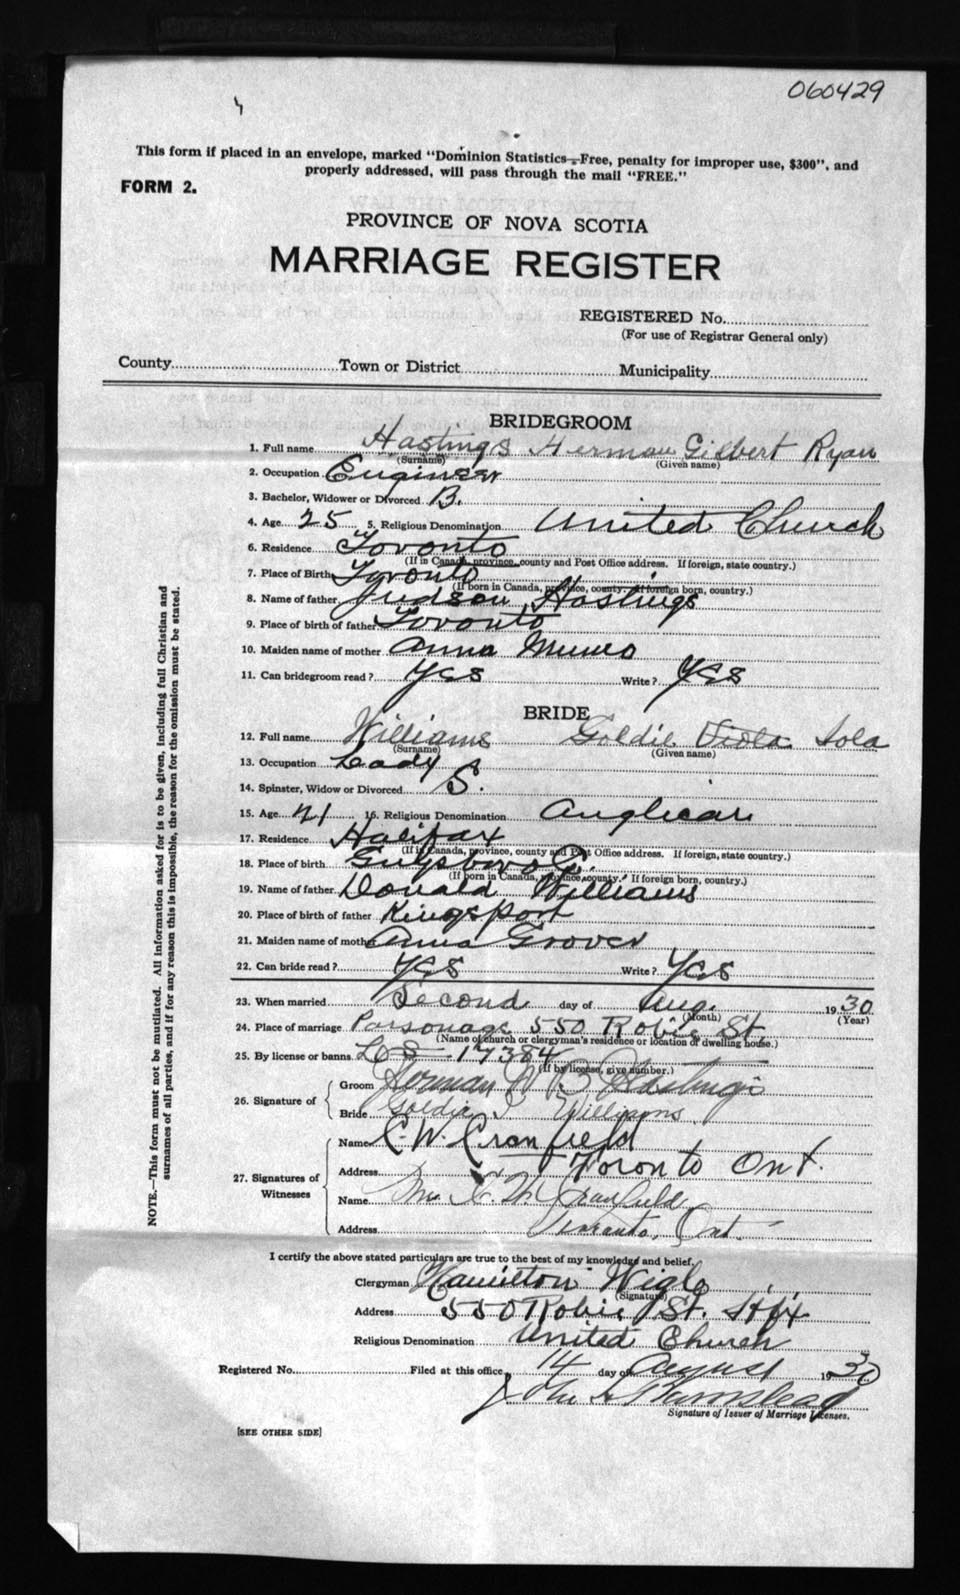 060429
This form if placed in an envelope, marked "Dominion Statistics—Free, penalty for improper use, $300", and
properly addressed, will pass through the mail "FREE."
FORM 2.
PROVINCE OF NOVA SCOTIA
MARRIAGE REGISTER
REGISTERED No.
(For use of Registrar General only)
County Town or District Municipality
BRIDEGROOM
1. Full name Hastings Herman Gilbert Ryan
(Surname) (Given name)
2. Occupation Engineer
3. Bachelor, Widower or Divorced B.
4. Age 25 5. Religious Denomination United Church
6. Residence Toronto
(If in Canada, province, county and Post Office address. If foreign, state country.)
7. Place of Birth Toronto
(If born in Canada, province, county. If foreign born, country.)
8. Name of father Judson Hastings
9. Place of birth of father Toronto
10. Maiden name of mother Anna Munro
11. Can bridegroom read? Yes Write? Yes
BRIDE
12. Full name Williams Goldie Viola Iola
(Surname) (Given name)
13. Occupation Lady
14. Spinster, Widow or Divorced S.
15. Age 21 16. Religious Denomination Anglican
17. Residence Halifax
(If in Canada, province, county and Post Office address. If foreign, state country.)
18. Place of birth Guysboro Co.
(If born in Canada, province, county. If foreign born, country.)
19. Name of father Donald Williams
20. Place of birth of father Kingsport
21. Maiden name of mother Anna Grover
22. Can bride read? Yes Write? Yes
23. When married Second day of Aug. 1930
(Month) (Year)
24. Place of marriage Parsonage 550 Robie St.
(Name of church or clergyman's residence or location of dwelling house.)
25. By license or banns 17384
(If by license, give number.)
26. Signature of Groom Herman Hastings
Bride Goldie I Williams
27. Signatures of Witnesses
Name C. W. Cranfield
Address Toronto Ont.
Name Mrs. C. W. Cranfield
Address Toronto, Ont.
I certify the above stated particulars are true to the best of my knowledge and belief.
Clergyman Hamilton Wigle
(Signature)
Address 550 Robie St. Hfx
Religious Denomination United Church
Registered No. Filed at this office 14 day of August 1930
Signature of Issuer of Marriage Licenses.
[SEE OTHER SIDE]
NOTE.—This form must not be mutilated. All information asked for is to be given, including full Christian and
surnames of all parties, and if for any reason this is impossible, the reason for the omission must be stated.